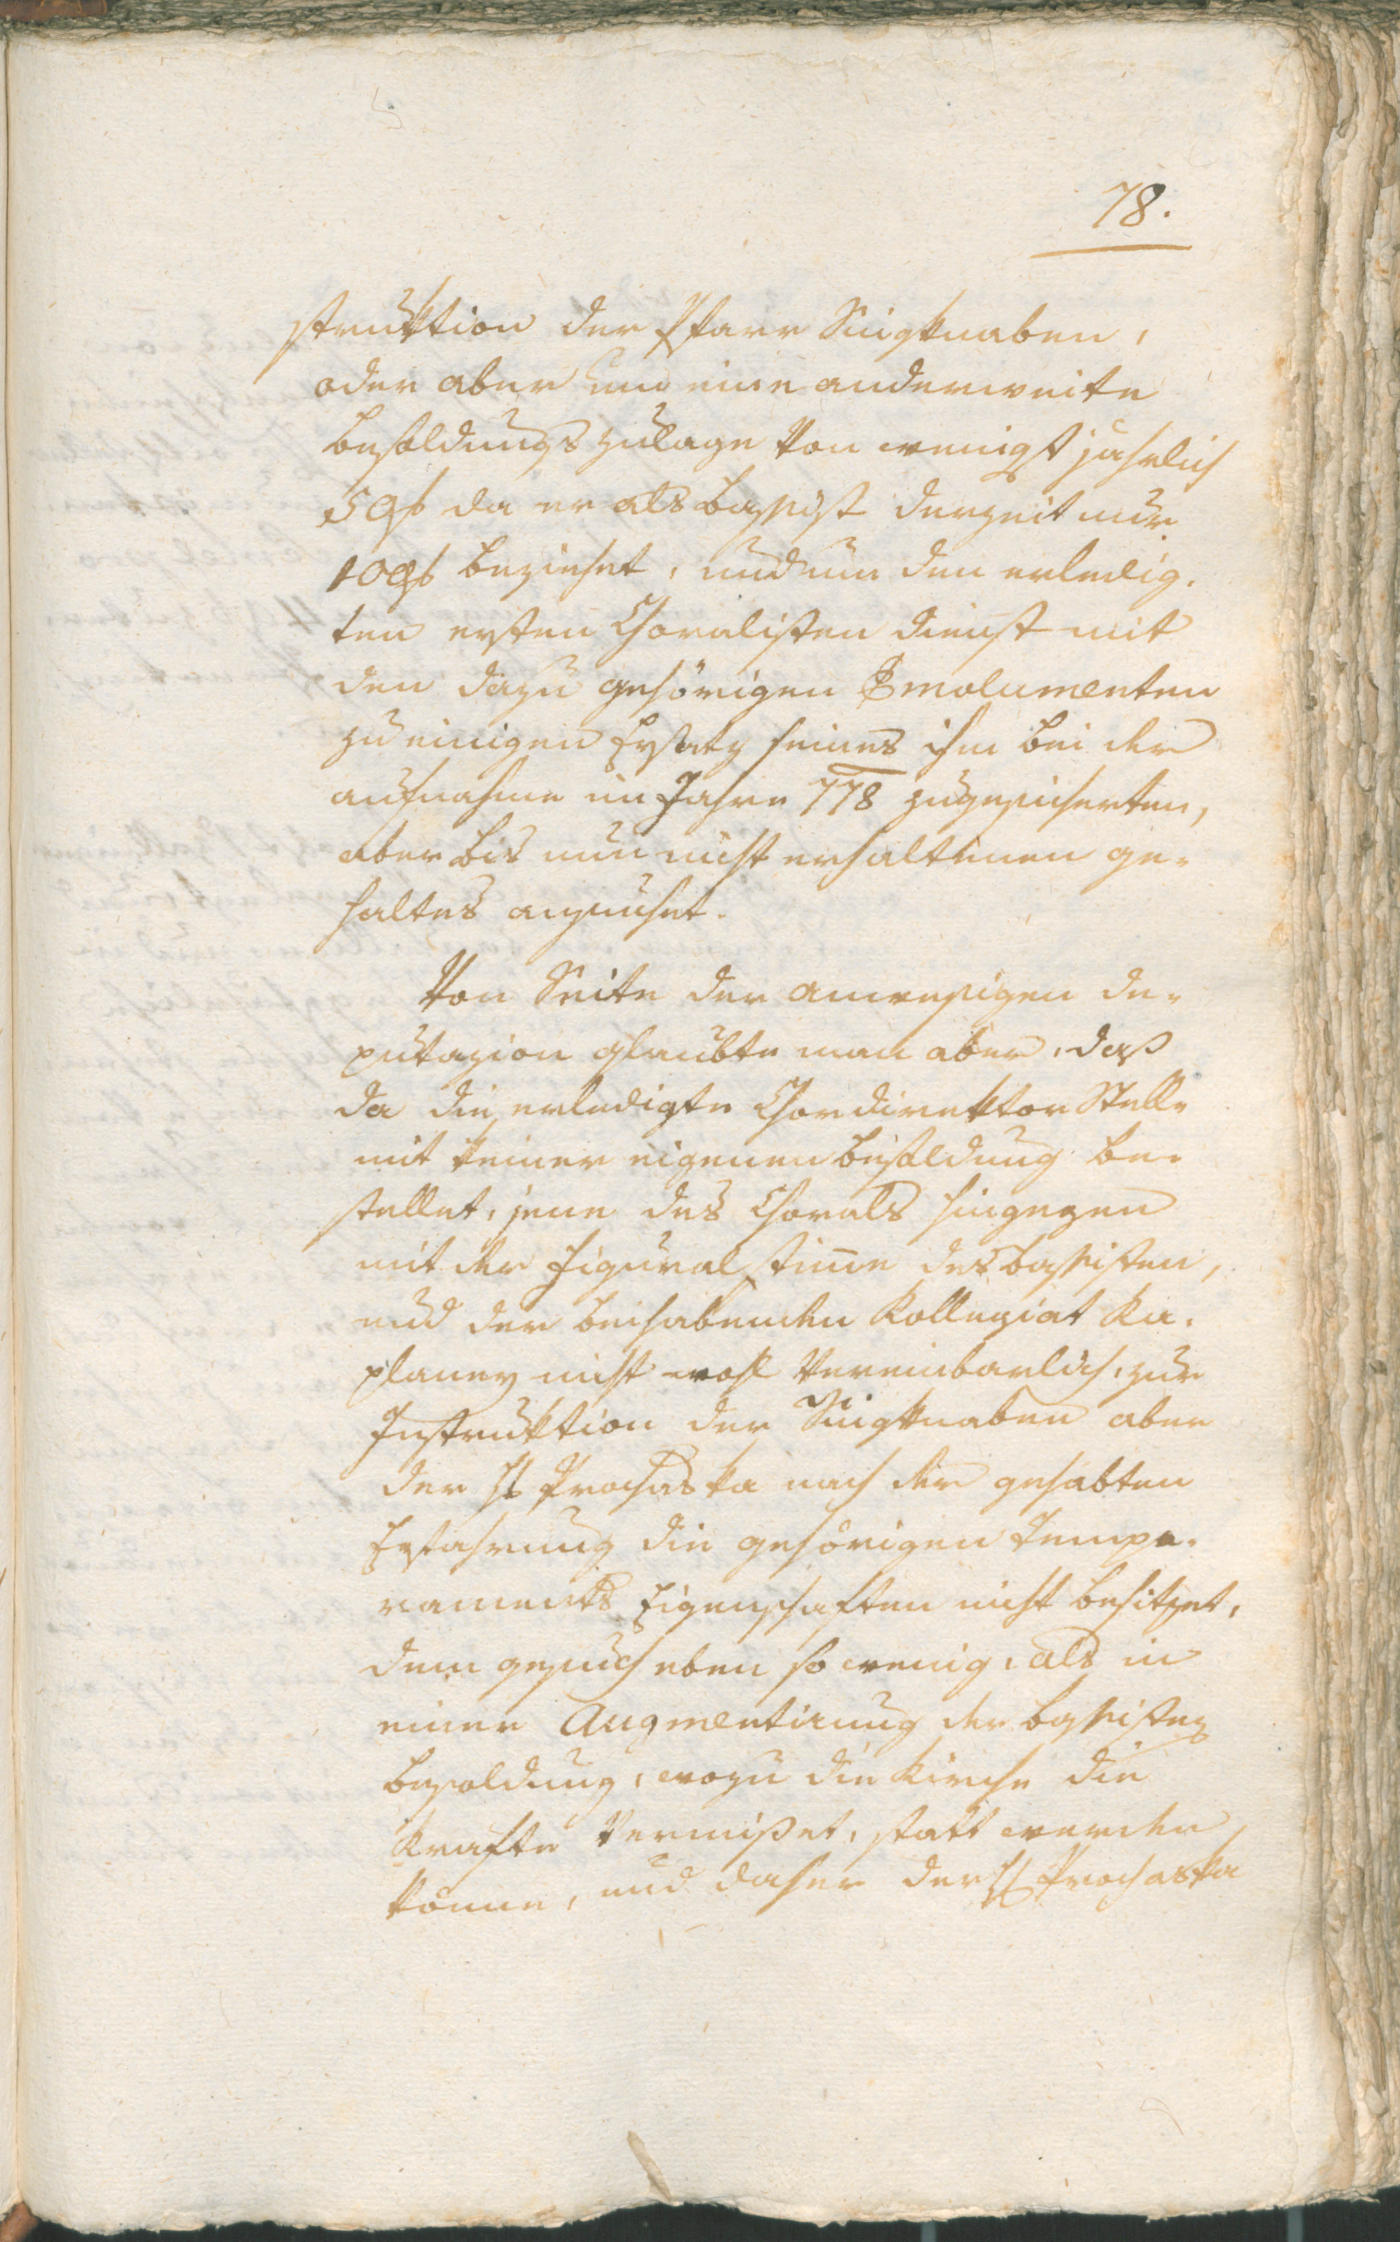 78.
struktion der Pfarr Singknaben,
oder aber um eine anderweite
besoldungs zulage von wenigst jährlich
50 f da er als bassist derzeit nur
100 f beziehet, und um den erledig-
ten ersten Choralisten dienst mit
den dazu gehörigen Emolumenten
zu einigen Ersatz seines ihm bei der
aufnahme im Jahre 778 zugesicherten,
aber bis nun nicht erhaltenen ge-
haltes ansuchet.
Von Seite der anwesigen de-
putazion glaubte man aber, daß
da die erledigte Chordirektor Stelle
mit keiner eigenen besoldung be-
stellet, jene des Chorals hingegen
mit der Figural stim̄e des bassisten,
und der beihabenden Kollegiat Ka-
planey nicht wohl vereinbarlich, zur
Instruktion der Singknaben aber
der H Prochaska nach der gehabten
Erfahrung die gehörigen Tempe-
raments Eigenschaften nicht besitzet,
dem gesuch eben so wenig, als in
einer Augmentirung der bassisten
besoldung, wozu die Kirche die
Kräfte vermisset, statt werden
könne, und daher der H Prochaska